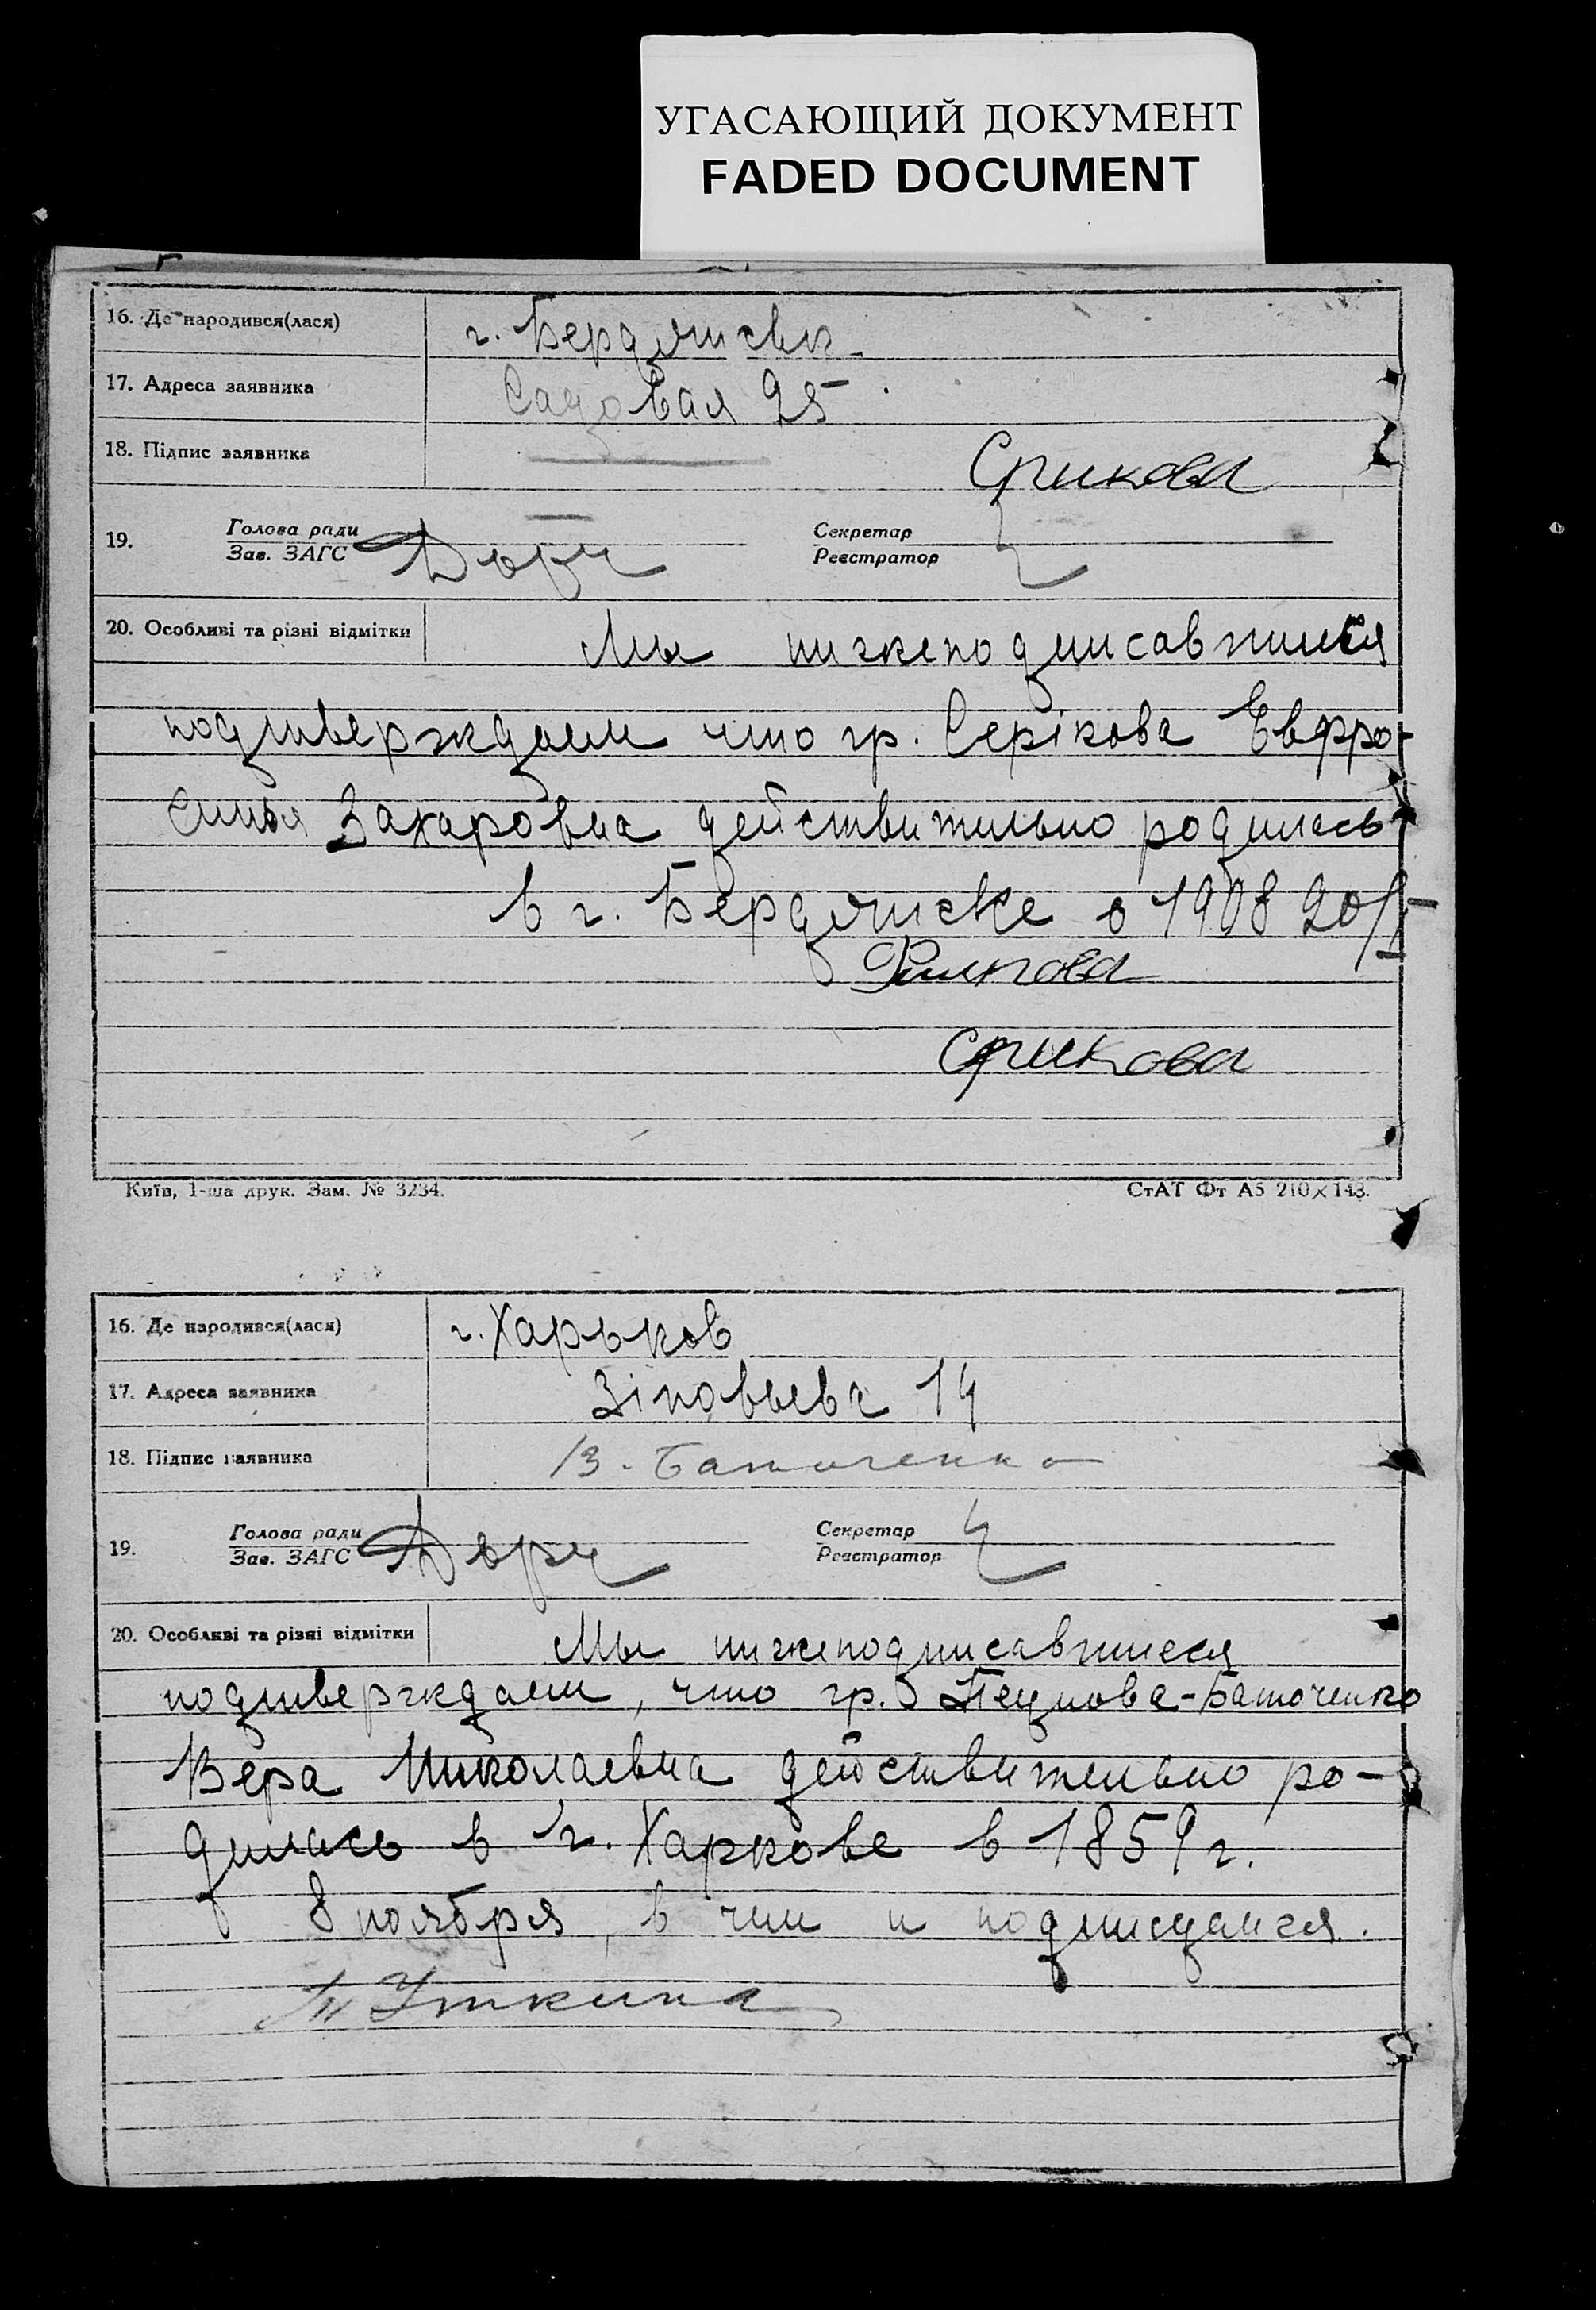 УГАСАЮЩИЙ ДОКУМЕНТ
FADED DOCUMENT
16. Де народився(лася) г. Бердянск
17. Адреса заявника Садовая 25
18. Підпис заявника Срикова
19. Голова ради Секретар
Зав. ЗАГС Реєстратор
20. Особливі та різні відмітки Мы нижеподписавшиеся
подтверждаем что гр. Серікова Евфро-
синья Захаровна действительно родилась
в г. Бердянске в 1908 20/
Срикова
Київ, 1-ша друк. Зам. № 3234. СтАТ Фт А5 210×148.
16. Де народився(лася) г. Харьков
17. Адреса заявника Зіновьева 14
18. Підпис заявника В. Баточенко
19. Голова ради Секретар
Зав. ЗАГС Реєстратор
20. Особливі та різні відмітки Мы нижеподписавшиеся
подтверждаем, что гр. Баточенко
Вера Николаевна действительно ро-
дилась в г. Харкове в 1859 г.
8 ноября, в чем и подписуемся.
Уткина